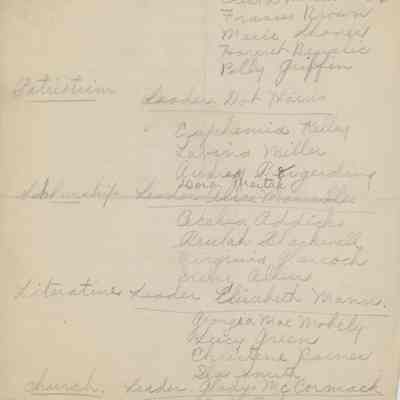 Frances Brown
Marie Shores
Polly Griffin
Patriotism
Leader Dot Harris
Euphemia Kelley
Lavina Miller
Audrey
Dora
Scholarship Leader
Acalea Addicks
Beulah Blackwell
Virginia Hancock
Irene Allen
Literature Leader Elizabeth Mann.
Georgia Mae Mobely
Lucy Green
Christine Raines
Smith
Church. Leader. Gladys McCormack